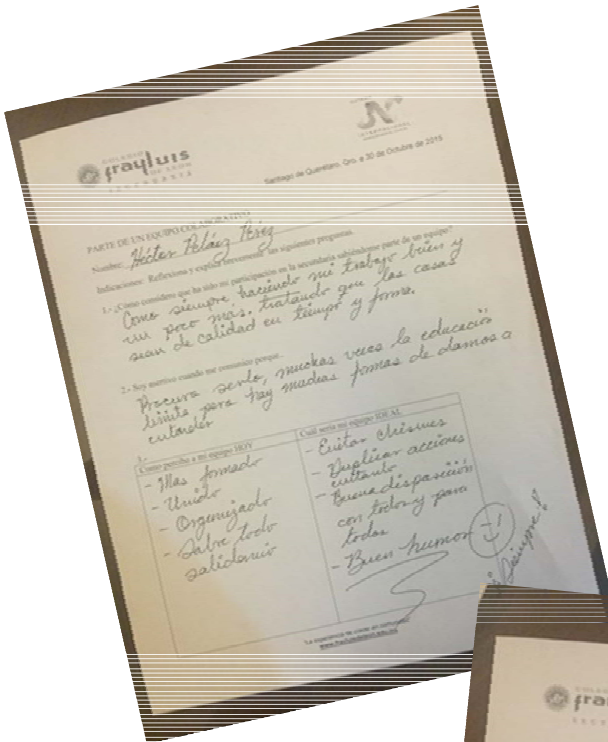 COLEGIO
frayluis
DE LEÓN
SECUNDARIA
INTERNACIONAL
Santiago de Querétaro, Qro. a 30 de Octubre de 2015
PARTE DE UN EQUIPO COLABORATIVO
Nombre: Héctor Peláez Pérez
Indicaciones: Reflexiona y explica brevemente las siguientes preguntas.
1.- ¿Como considero que ha sido mi participación en la secundaria sabiéndome parte de un equipo?
Como siempre haciendo mi trabajo bien y
un poco mas. tratando que las cosas
sean de calidad en tiempo y forma.
2.- Soy asertivo cuando me comunico porque.
Procuro serlo, muchas veces la educación
limita, pero hay muchas formas de darnos a
entender
3.-
Como percibo a mi equipo HOY
- Mas formado
- Unido
- Organizado
- Sobre todo
solidario
Cuál sería mi equipo IDEAL
- Evitar chismes
- Duplicar acciones
evitando
- Buena disposición
con todos y para
todos
- Buen humor
¡Siempre!
"La experiencia de crecer en comunidad"
www.frayluisdeleon.edu.mx
COLE
fra
SECU